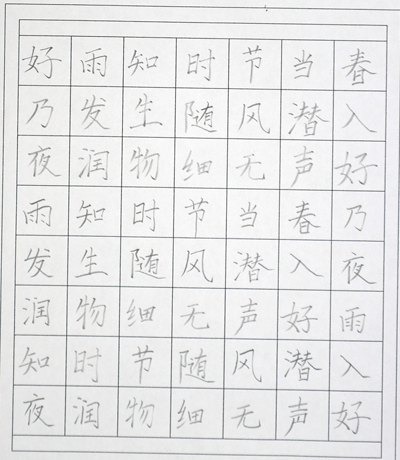 好雨知时节当春
乃发生随风潜入
夜润物细无声好
雨知时节当春乃
发生随风潜入夜
润物细无声好雨
知时节随风潜入
夜润物细无声好